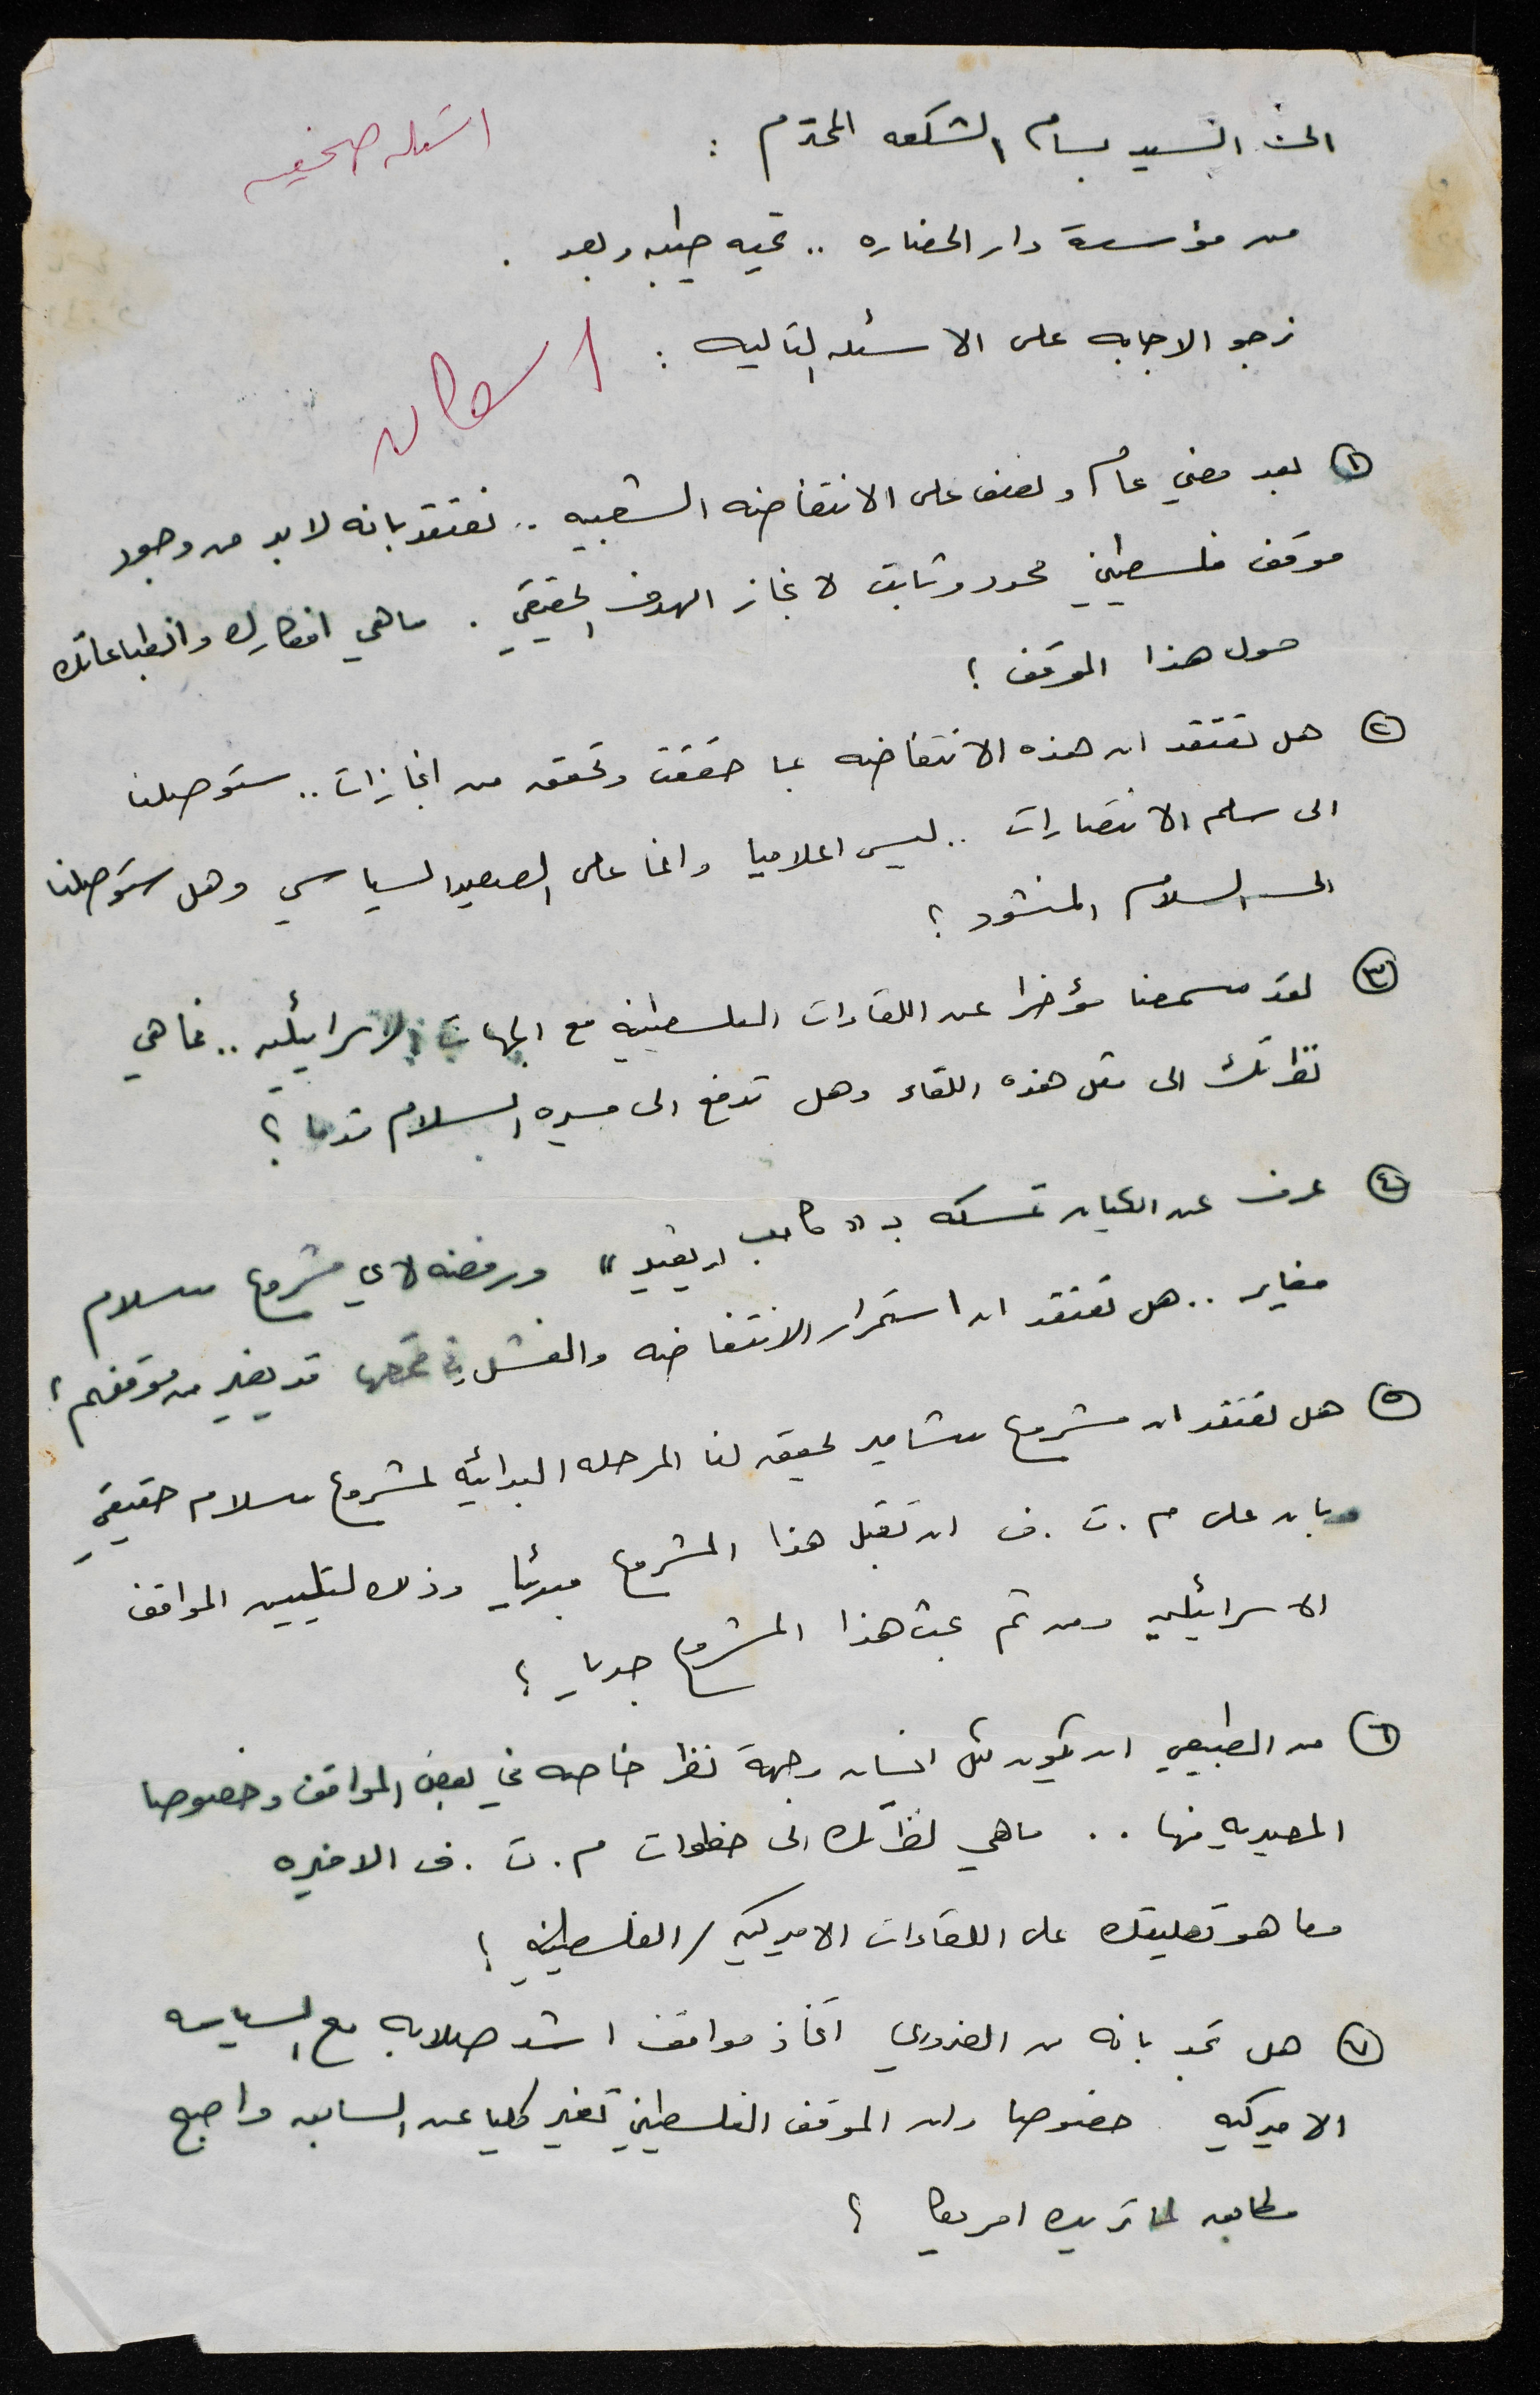 اسئله صحفيه
الى السيد بسام الشكعه المحترم :
من مؤسسة دار الحضاره .. تحيه طيبه وبعد .
نرجو الاجابه على الاسئله التاليه :
١ بعد مضي عام ونصف على الانتفاضه الشعبيه .. نعتقد بانه لا بد من وجود
موقف فلسطيني محدد وثابت لانجاز الهدف الحقيقي . ما هي افكارك وانطباعاتك
حول هذا الموقف ؟
٢ هل تعتقد ان هذه الانتفاضه بما حققت وتحقق من انجازات .. ستوصلنا
الى سلم الانتصارات .. ليس اعلاميا وانما على الصعيد السياسي وهل ستوصلنا
الى السلام المنشود ؟
٣ لقد سمعنا مؤخرا عن اللقاءات الفلسطينيه مع الجهات الاسرائيليه .. فما هي
نظرتك الى مثل هذه اللقاء وهل تدفع الى مسيره السلام قدما ؟
٤ عرف عن الكيان تمسكه بـ " كامب ديفيد " ورفضه لاي مشروع سلام
مغاير .. هل تعتقد ان استمرار الانتفاضه والفشل في قمعها قد يغير من موقفهم ؟
٥ هل تعتقد ان مشروع شامير يحقق لنا المرحله البدائيه لمشروع سلام حقيقي
وبان على م . ت . ف ان تقبل هذا المشروع مبدئيا وذلك لتليين المواقف
الاسرائيليه ومن ثم بحث هذا المشروع جديا ؟
٦ من الطبيعي ان يكون لكل انسان وجهة نظر خاصه في بعض المواقف وخصوصا
المصيريه منها .. ما هي نظرتك الى خطوات م . ت . ف الاخيره
وما هو تعليقك على اللقاءات الاميركيه / الفلسطينيه ؟
٧ هل تجد بانه من الضروري اتخاذ مواقف اشد صلابه مع السياسه
الاميركيه خصوصا وان الموقف الفلسطيني تغير كليا عن السابق واصبح
مطابق لما تريده امريكا ؟